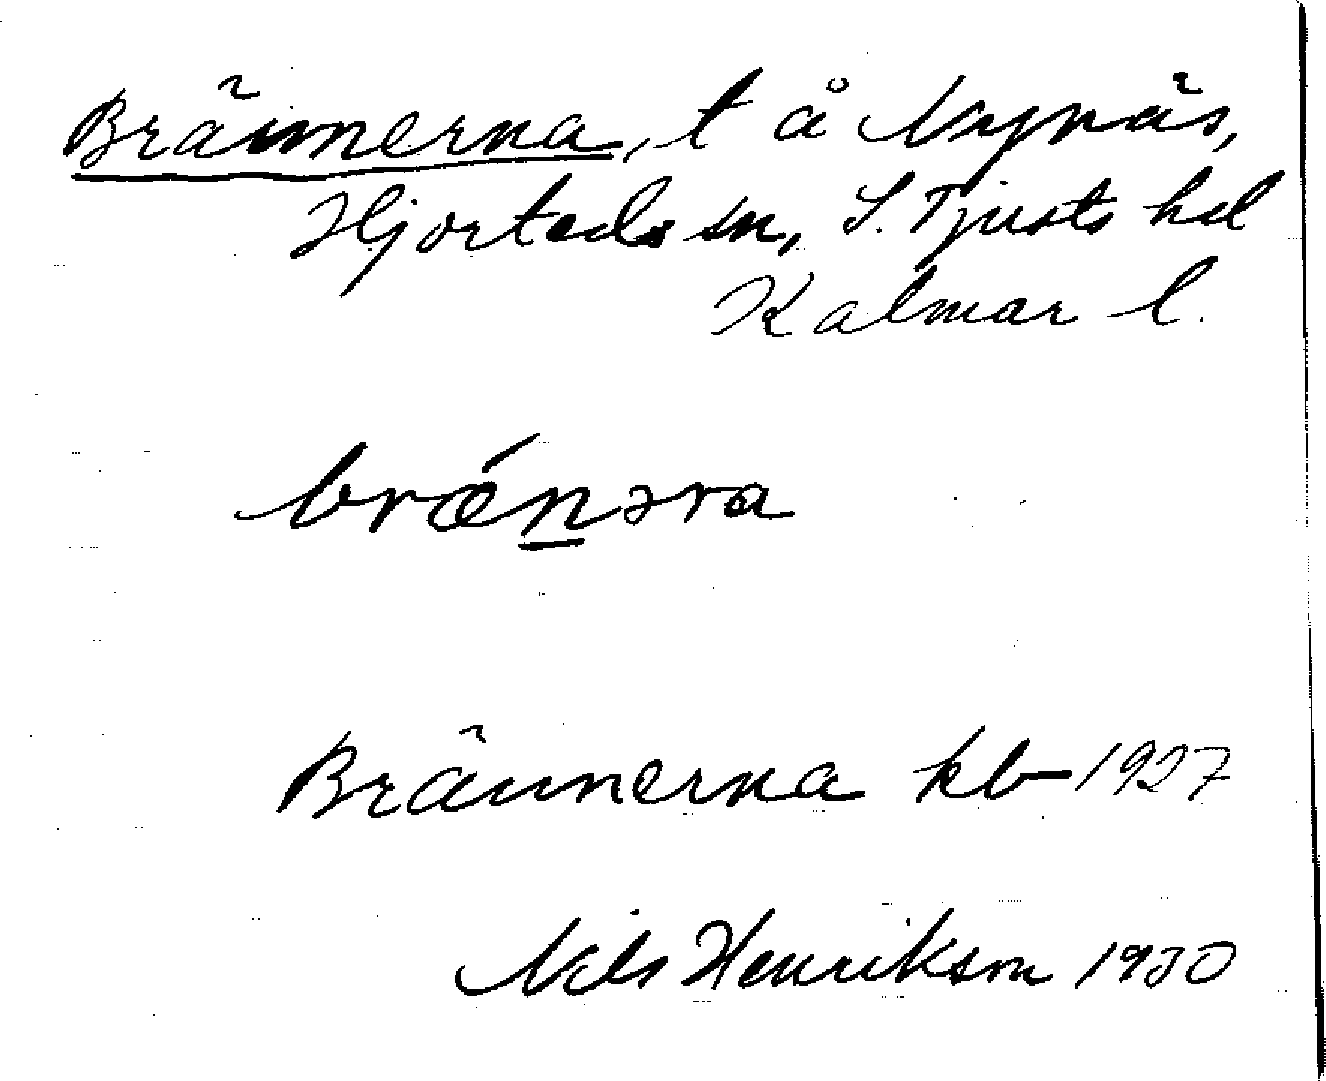 Brännerna, t å Nynäs,
Hjorteds sn, S. Tjusts hd
Kalmar l.
brǽn̲əra
Brännerna kb 1927
Nils Henrikson 1930